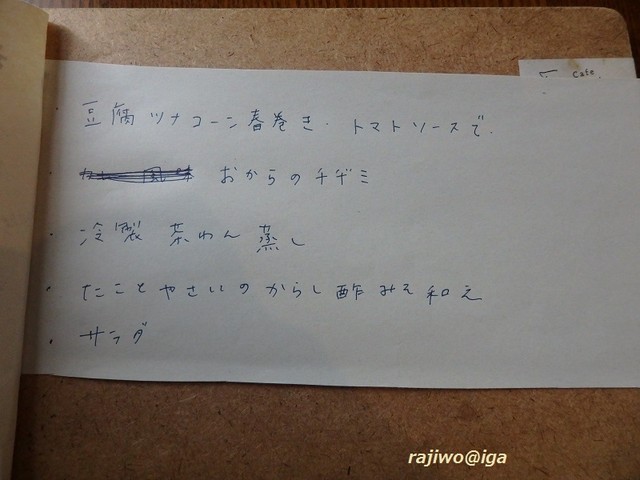 Cafe
・豆腐ツナコーン春巻き・トマトソースで.
・おからのチヂミ
・冷製 茶わん蒸し
・たことやさいのからし酢みそ和え
・サラダ
rajiwo@iga